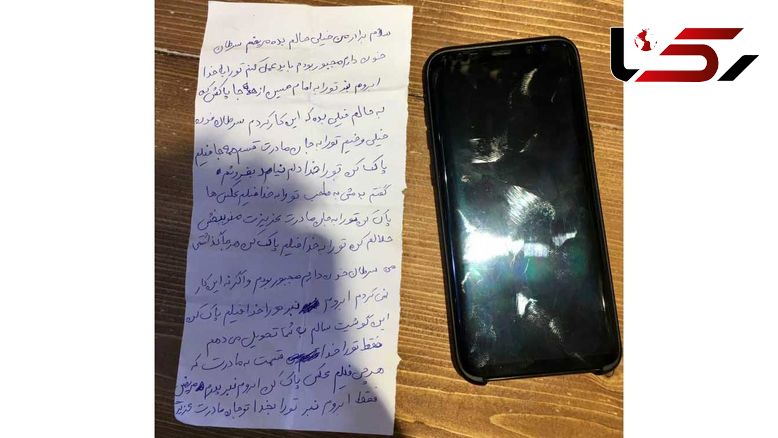 رکنا
سلام برادر من خیلی حالم بده مریضم سرطان
خون دارم مجبور بودم باید عمل کنم تو را به خدا
ابروم نبر تو را به امام حسین از همه جا پاکش کن
به حالم خیلی بده که این کار کردم سرطان خون
خیلی وخیم تو را به جان مادرت قسم همه جا فیلم
پاک کن تو را خدا دلم نیامد بفروشم
گفتم به می به صاحب تو را به خدا فیلم عکس ها
پاک کن تو را به جان مادرت عزیزت منو ببخش
حلالم کن تو را به خدا فیلم پاک کن هر جا گذاشتی
من سرطان خون دارم مجبور بودم واگر نه این کار
نمی کردم ابروم نبر تو را خدا فیلم پاک کن
این گوشیت سالم به شما تحویل می دهم
فقط تو را خدا قسمت به مادرت که
هر چی فیلم عکس پاک کن ابروم نبر بدم مریض
فقط ابروم نبر تو را بخدا تو جان مادرت عزیزت